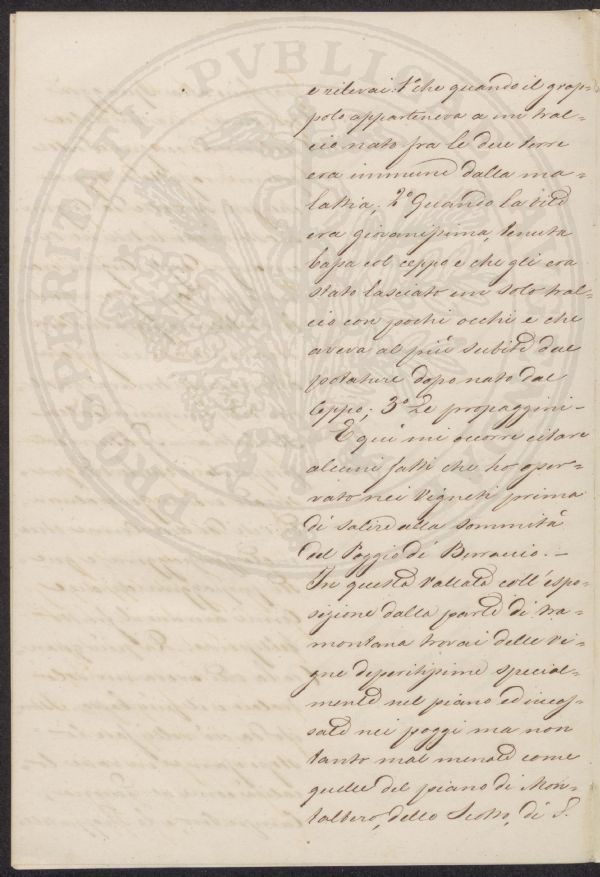 e rilevai: 1º che quando il grap=
polo apparteneva a un tral=
cio nato fra le due terre
era immune dalla ma=
lattia; 2º Quando la vite
era giovanissima, tenuta
bassa col ceppo e che gli era
stato lasciato un solo tral=
cio con pochi occhi e che
aveva al più subite due
potature dopo nato dal
Ceppo; 3º Le propaggini –
E qui mi occorre citare
alcuni fatti che ho osser=
vato nei Vigneti prima
di salire alla sommità
del Poggio di Bervaccio. –
In questa vallata coll'espo=
sizione dalla parte di tra=
montana trovai delle vi=
gne deperitissime special=
mente nel piano ed incas=
sate nei poggi ma non
tanto mal menate come
quelle del piano di Mon=
talbero, dello Scotto, di S.
PROSPERITATI PVBLICAE